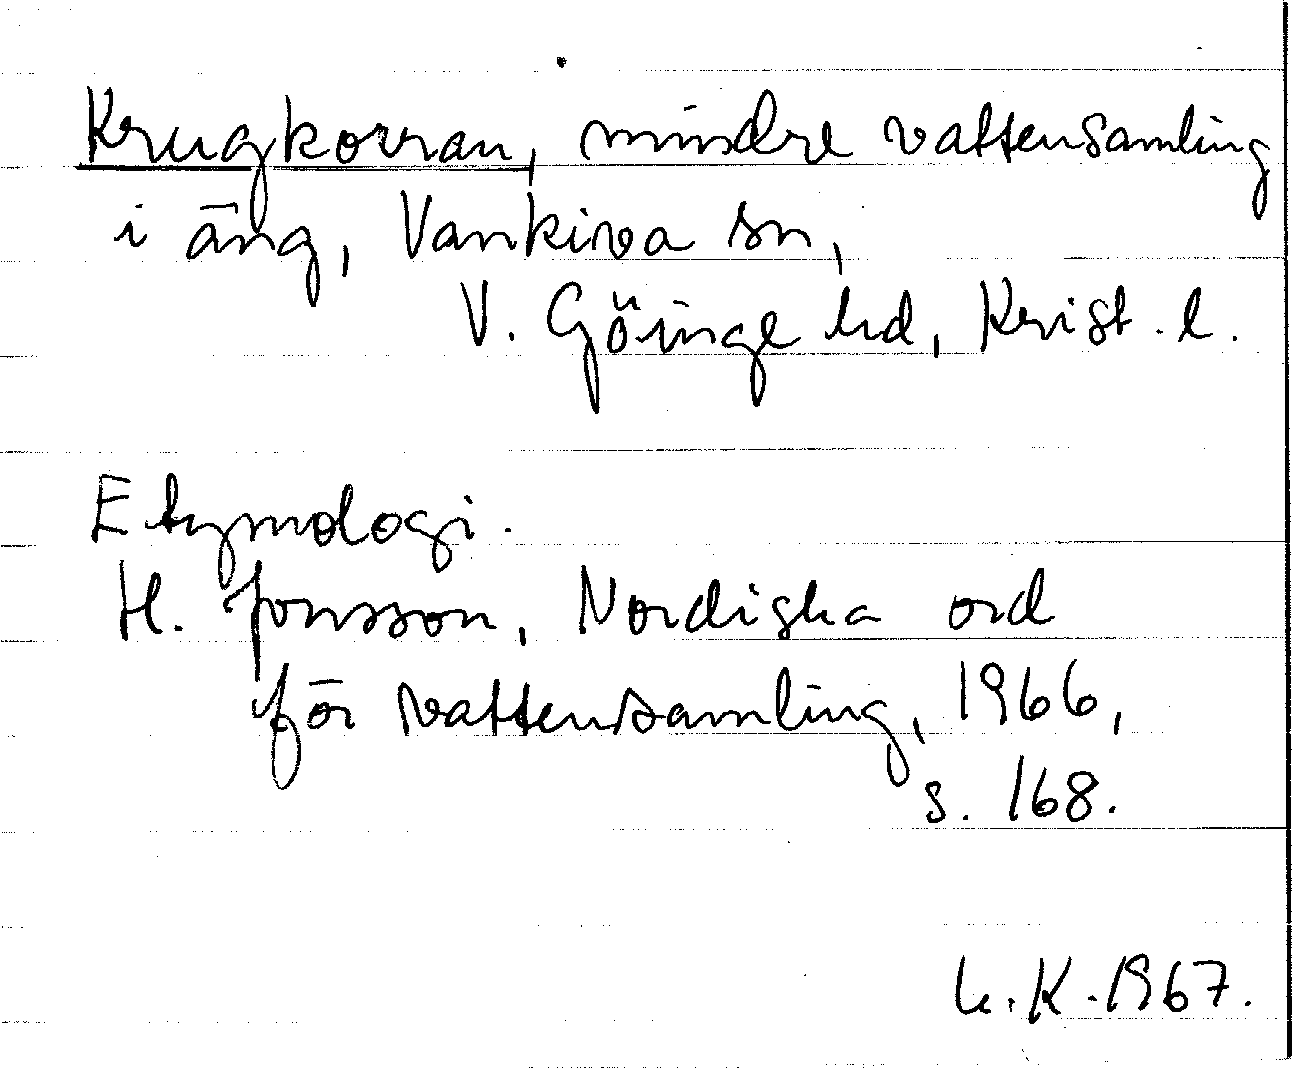 Krugkorran, mindre vattensamling
i äng, Vankiva sn,
V. Göinge hd, Krist. l.
Etymologi.
H. Jonsson, Nordiska ord
för vattensamling, 1966,
s. 168.
K. 1967.